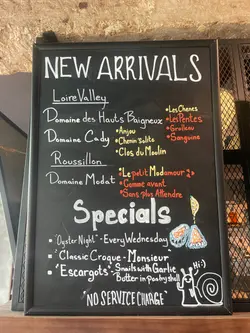 NEW ARRIVALS
Loire Valley
Domaine des Hauts Baigneux
• Les Chenes
• Les Pentes
• Grolleau
• Sanguine
Domaine Cady
• Anjou
• Chenin'solite
• Clos du Moulin
Roussillon
Domaine Modat
• Le petit Modamour
• Comme avant
• Sans plus Attendre
Specials
• "Oyster Night" - Every Wednesday
• "Classic Croque - Monsieur
• "Escargots" - Snails with Garlic
Butter in pastry shell
Hi :)
"NO SERVICE CHARGE"